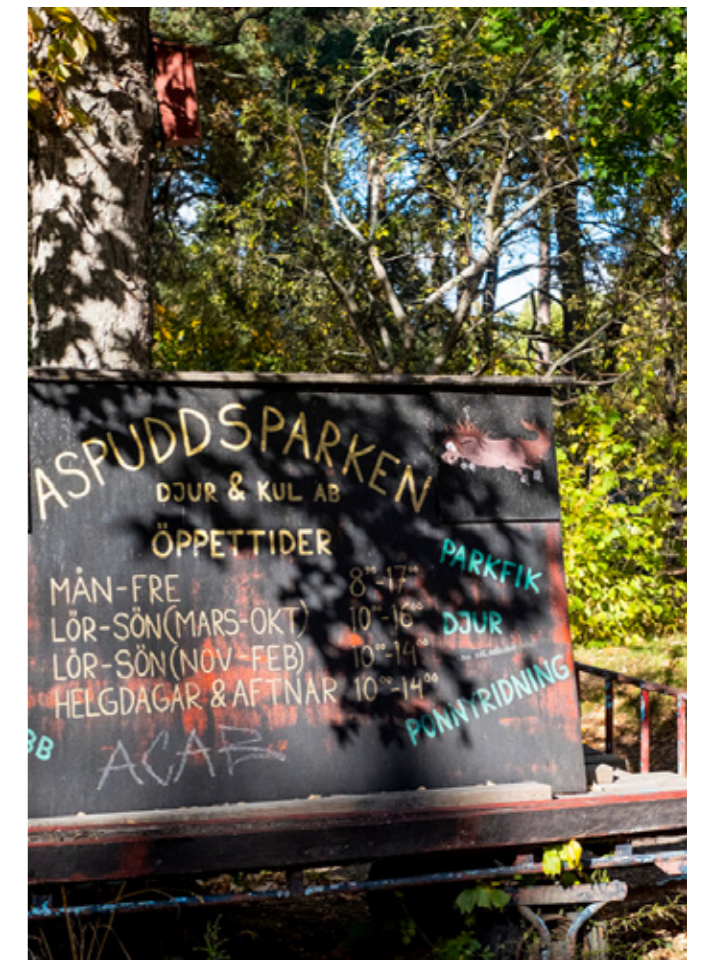 ASPUDDSPARKEN
DJUR & KUL AB
ÖPPETTIDER
MÅN-FRE 8⁰⁰-17⁰⁰
LÖR-SÖN(MARS-OKT) 10⁰⁰-16⁰⁰
LÖR-SÖN(NOV-FEB) 10⁰⁰-14⁰⁰
HELGDAGAR & AFTNAR 10⁰⁰-14⁰⁰
PARKFIK
DJUR
PONNYRIDNING
BB
ACAB